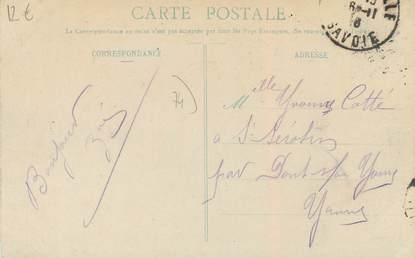 12 €
CARTE POSTALE
La Correspondance au recto n'est pas acceptée par tous les Pays Etrangers.
CORRESPONDANCE
ADRESSE
SAVOIE
74)
Bonjour
Mlle Yvonne Cotté
à St Sérotin
par Pont s/ Yonne
Yonne